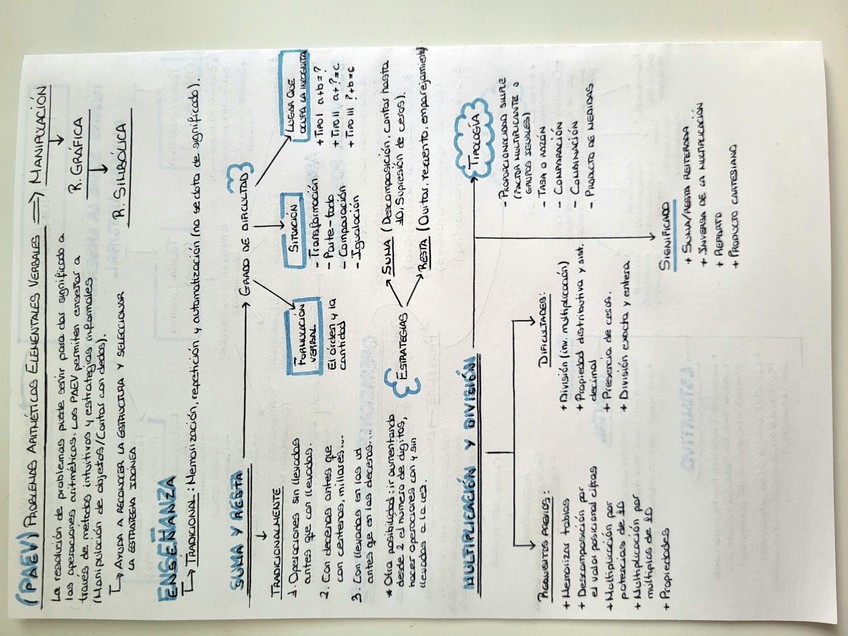 (PAEV) PROBLEMAS ARITMÉTICOS ELEMENTALES VERBALES ⇒ MANIPULACIÓN
↓
R. GRÁFICA
↓
R. SIMBÓLICA
La resolución de problemas puede servir para dar significado a
las operaciones aritméticas. Los PAEV permiten enseñar a
través de métodos intuitivos y estrategias informales
(Manipulación de objetos/Contar con dedos).
↳ AYUDA A RECONOCER LA ESTRUCTURA Y SELECCIONAR
LA ESTRATEGIA IDÓNEA
ENSEÑANZA
↳ TRADICIONAL: Memorización, repetición y automatización (no se dota de significado).
SUMA Y RESTA → GRADO DE DIFICULTAD
↓
TRADICIONALMENTE
1. Operaciones sin llevadas
antes que con llevadas.
2. Con decenas antes que
con centenas, millares...
3. Con llevadas en las ud
antes que en las decenas...
* Otra posibilidad: ir aumentando
desde 2 el número de dígitos,
hacer operaciones con y sin
llevadas a la vez.
FORMULACIÓN
VERBAL
El orden y la
cantidad
SITUACIÓN
- Transformación
- Parte-todo
- Comparación
- Igualación
LUGAR QUE
OCUPA LA INCÓGNITA
+ TIPO I a+b=?
+ TIPO II a+?=c
+ TIPO III ?+b=c
ESTRATEGIAS
SUMA (Descomposición, contar hasta
10, Supresión de ceros).
RESTA (Quitar, recuento, emparejamiento)
MULTIPLICACIÓN Y DIVISIÓN → TIPOLOGÍA
REQUISITOS PREVIOS:
+ Memorizar tablas
+ Descomposición por
el valor posicional cifras
+ Multiplicación por
potencias de 10
+ Multiplicación por
múltiplos de 10
+ Propiedades
DIFICULTADES:
+ División (inv. multiplicación)
+ Propiedad distributiva y sist.
decimal
+ Presencia de ceros.
+ División exacta y entera.
- PROPORCIONALIDAD SIMPLE
(FACTOR MULTIPLICANTE O
GRUPOS IGUALES)
- TASA O RAZÓN
- COMPARACIÓN
- COMBINACIÓN
- PRODUCTO DE MEDIDAS
SIGNIFICADO
+ SUMA/RESTA REITERADA
+ INVERSA DE LA MULTIPLICACIÓN
+ REPARTO
+ PRODUCTO CARTESIANO